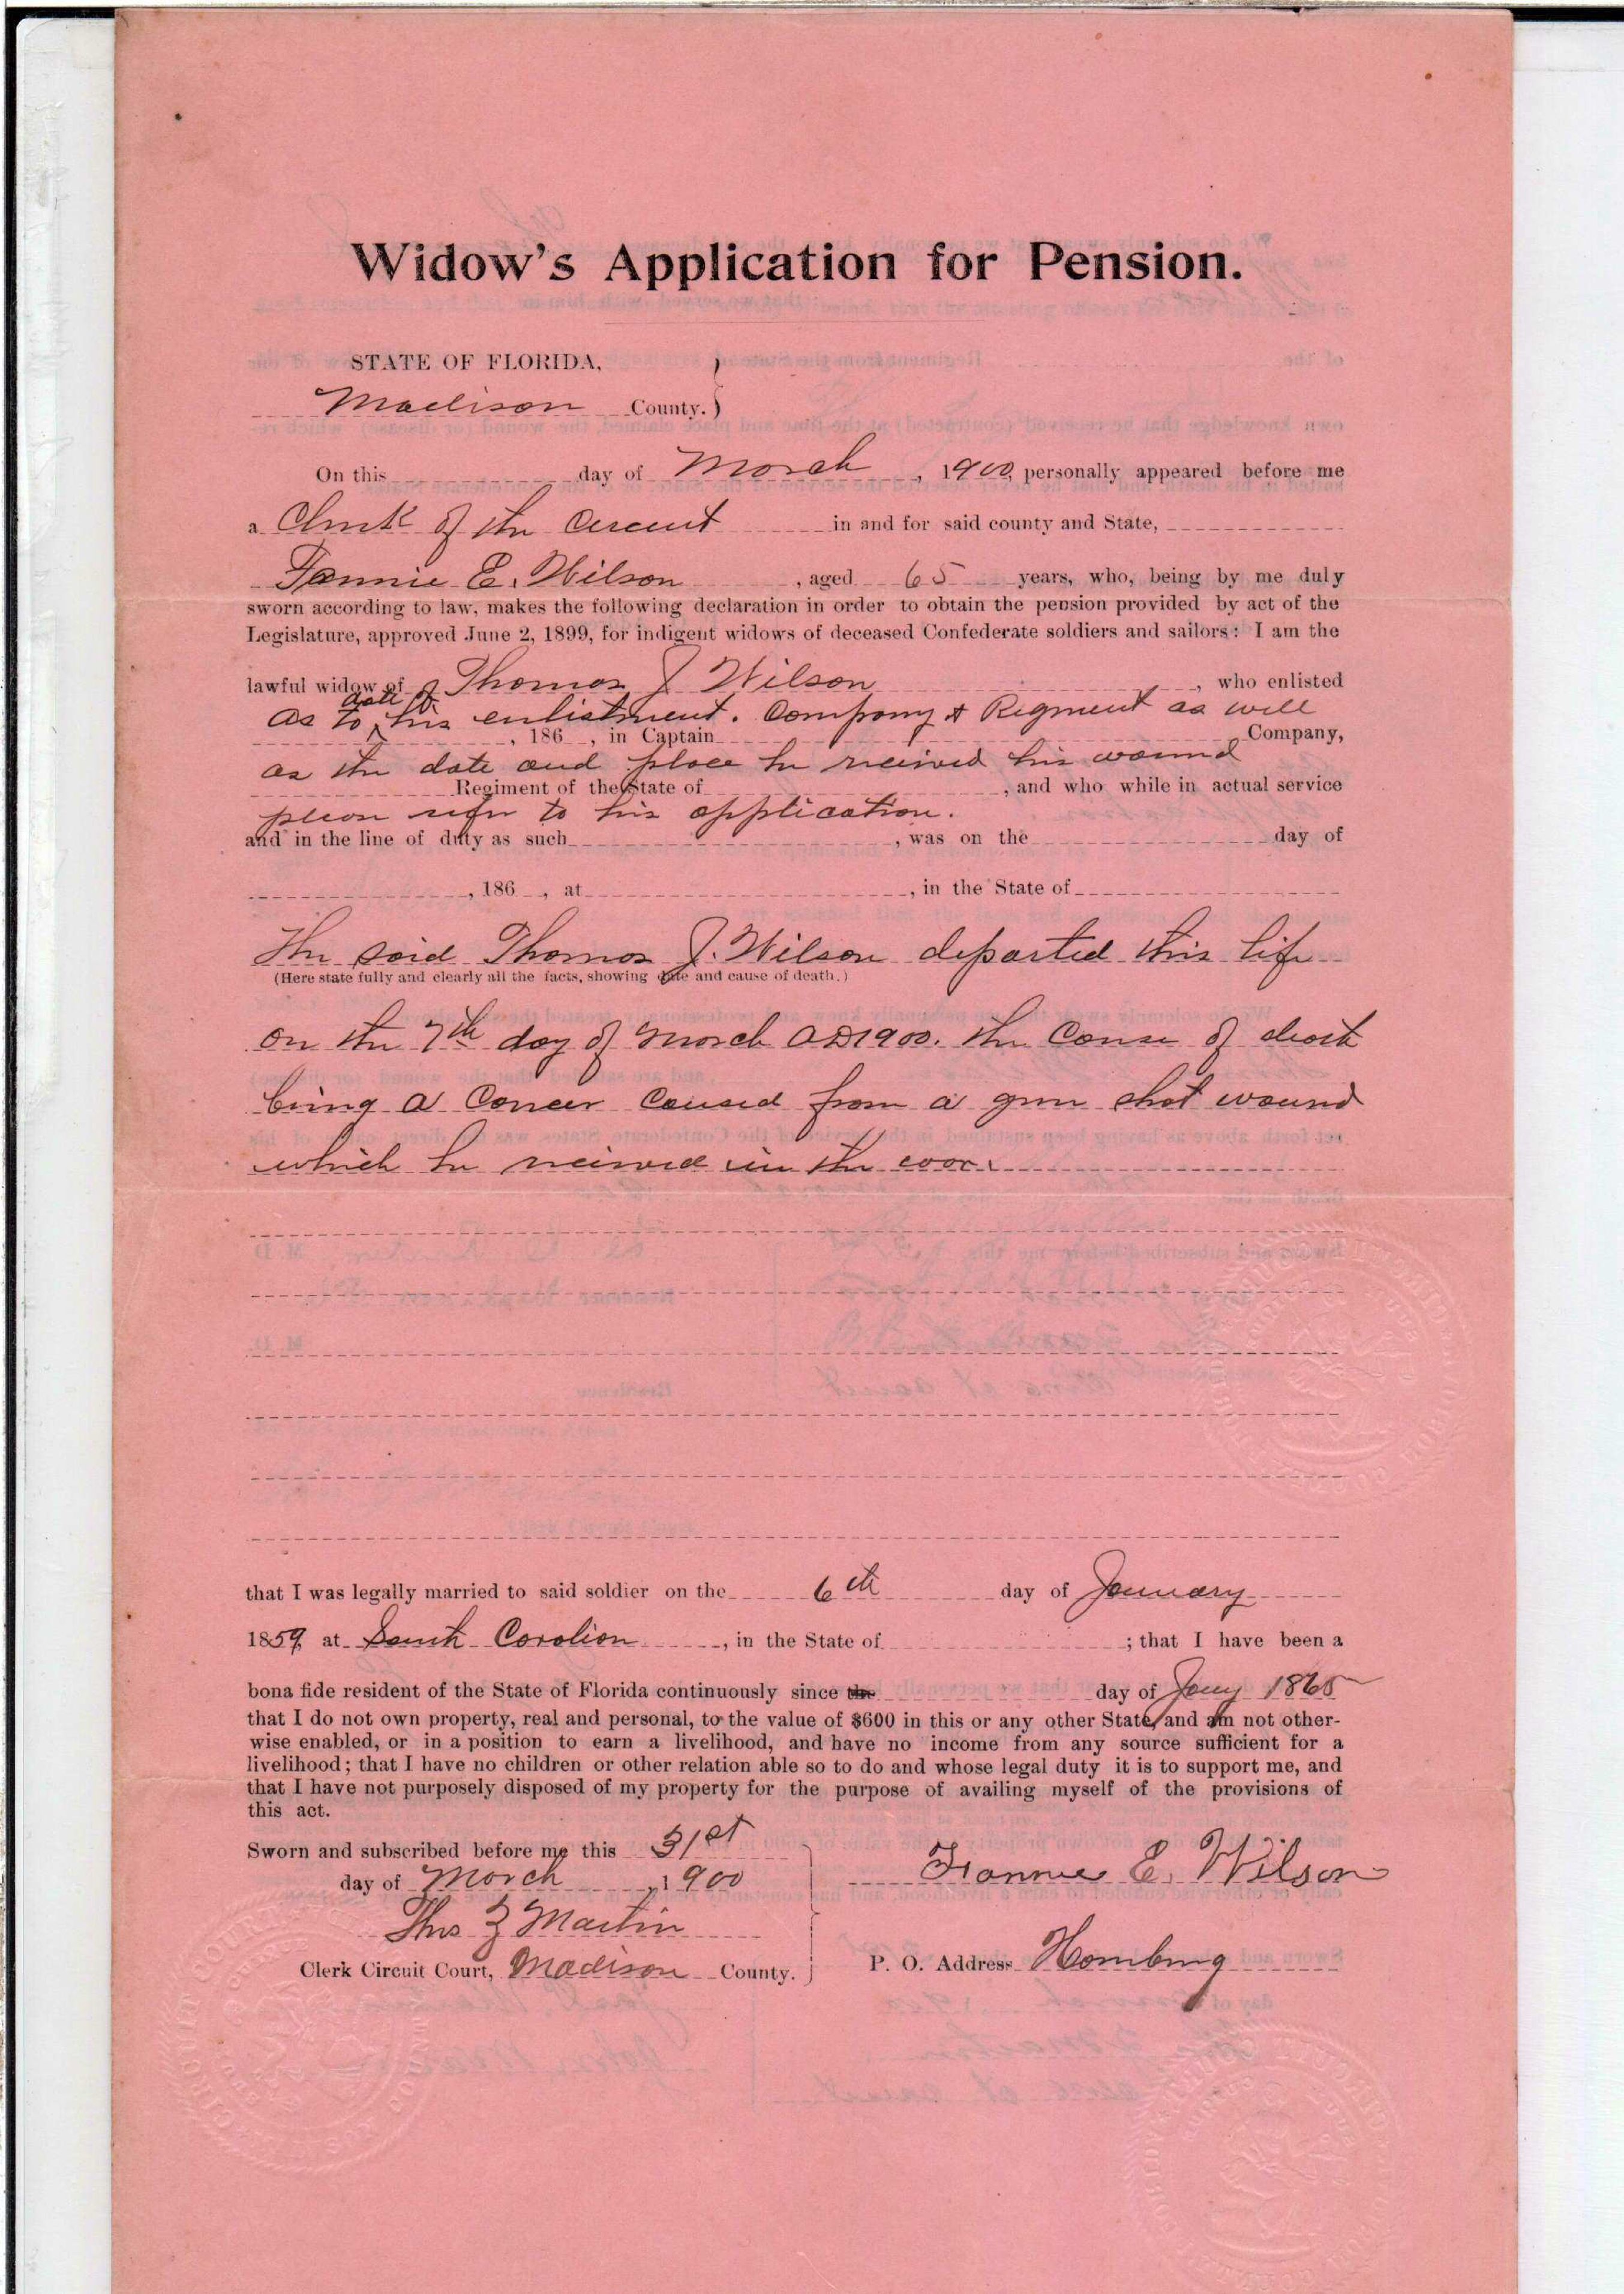 Widow's Application for Pension.
STATE OF FLORIDA,
Madison County.
On this day of March, 1900, personally appeared before me
a Clerk of the Circuit in and for said county and State,
Fannie E. Wilson, aged 65 years, who, being by me duly
sworn according to law, makes the following declaration in order to obtain the pension provided by act of the
Legislature, approved June 2, 1899, for indigent widows of deceased Confederate soldiers and sailors: I am the
lawful widow of Thomas J Wilson, who enlisted
as to date of his enlistment. Company & Regment as well
, 186 , in Captain Company,
as the date and place he received his wound
Regiment of the State of , and who while in actual service
please refer to his application.
and in the line of duty as such , was on the day of
, 186 , at , in the State of
The said Thomas J. Wilson departed this life
(Here state fully and clearly all the facts, showing date and cause of death.)
on the 7th day of March AD 1900. the cause of death
being a Cancer caused from a gun shot wound
which he received in the war.
that I was legally married to said soldier on the 6th day of January
1859, at South Carolion, in the State of ; that I have been a
bona fide resident of the State of Florida continuously since the day of Jany 1865
that I do not own property, real and personal, to the value of $600 in this or any other State, and am not other-
wise enabled, or in a position to earn a livelihood, and have no income from any source sufficient for a
livelihood; that I have no children or other relation able so to do and whose legal duty it is to support me, and
that I have not purposely disposed of my property for the purpose of availing myself of the provisions of
this act.
Sworn and subscribed before me this 31st
day of March, 1900
Fannie E. Wilson
Thos Z Martin
Clerk Circuit Court, Madison County.
P. O. Address Hamburg